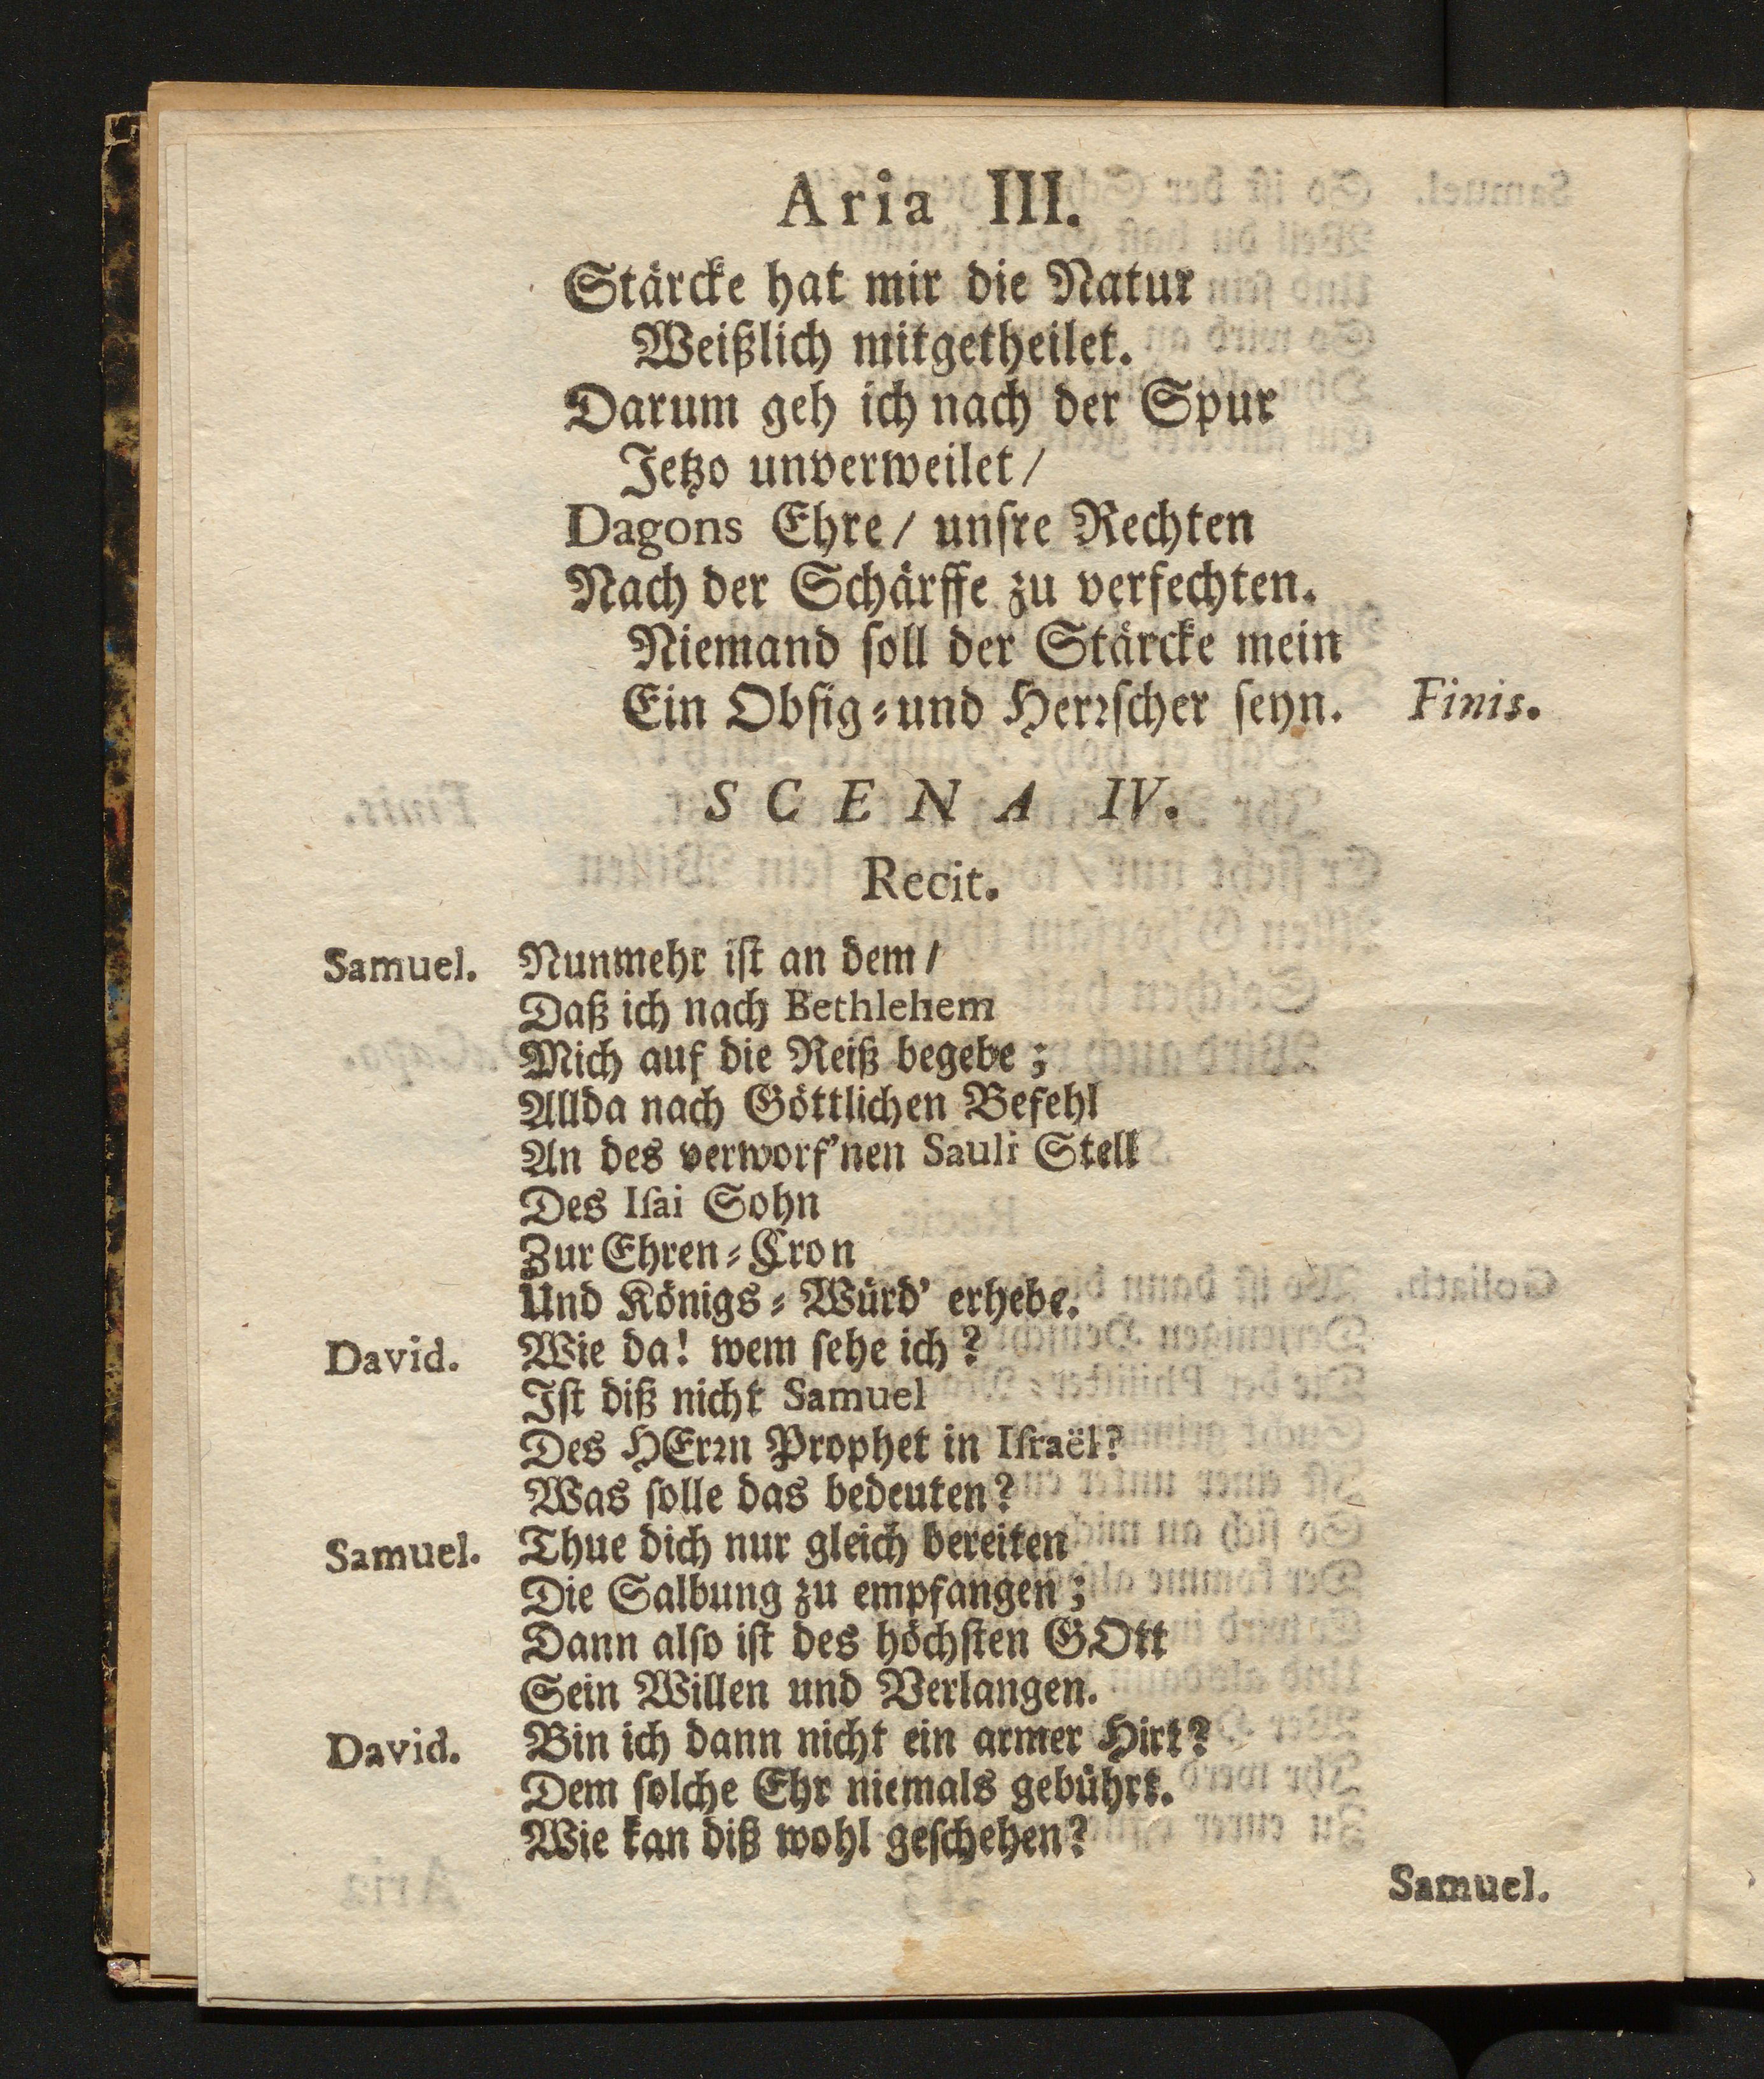 Aria III.
Stärcke hat mir die Natur
Weißlich mitgetheilet.
Darum geh ich nach der Spur
Jetzo unverweilet /
Dagons Ehre / unſre Rechten
Nach der Schärffe zu verfechten.
Niemand ſoll der Stärcke mein
Ein Obſig⸗und Herꝛſcher ſeyn. Finis.
SCENA IV.
Recit.
Samuel. Nunmehr iſt an dem /
Daß ich nach Bethlehem
Mich auf die Reiß begebe ;
Allda nach Göttlichen Befehl
An des verworf'nen Sauli Stell
Des Iſai Sohn
Zur Ehren⸗Cron
Und Königs⸗Würd' erhebe.
David. Wie da! wem ſehe ich ?
Iſt diß nicht Samuel
Des HErꝛn Prophet in Iſraël?
Was ſolle das bedeuten?
Samuel. Thue dich nur gleich bereiten
Die Salbung zu empfangen ;
Dann alſo iſt des höchſten GOtt
Sein Willen und Verlangen.
David. Bin ich dann nicht ein armer Hirt?
Dem ſolche Ehr niemals gebührt.
Wie kan diß wohl geſchehen?
Samuel.